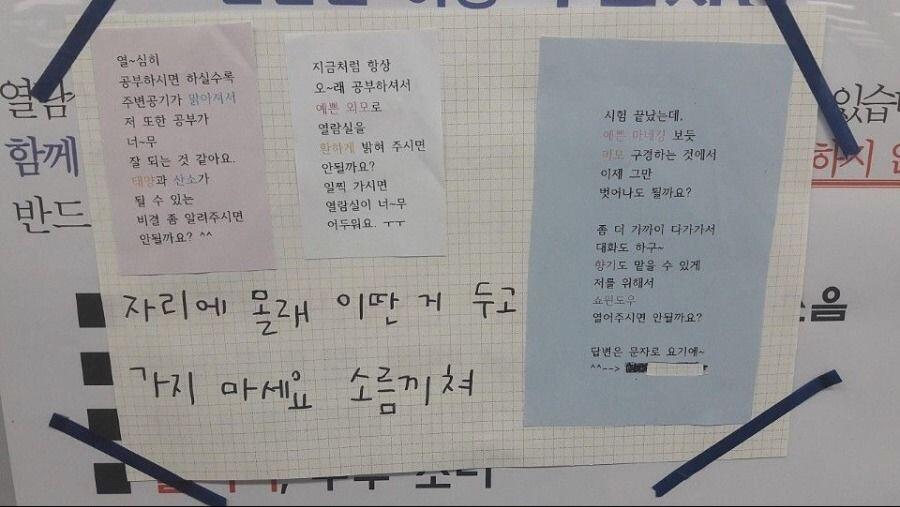 열~심히
공부하시면 하실수록
주변공기가 맑아져서
저 또한 공부가
너~무
잘 되는 것 같아요.
태양과 산소가
될 수 있는
비결 좀 알려주시면
안될까요? ^^
지금처럼 항상
오~래 공부하셔서
예쁜 외모로
열람실을
환하게 밝혀 주시면
안될까요?
일찍 가시면
열람실이 너~무
어두워요. ㅜㅜ
시험 끝났는데.
예쁜 마네킹 보듯
미모 구경하는 것에서
이제 그만
벗어나도 될까요?
좀 더 가까이 다가가서
대화도 하구~
향기도 맡을 수 있게
저를 위해서
쇼윈도우
열어주시면 안될까요?
답변은 문자로 요기에~
^^-->
자리에 몰래 이딴 거 두고
가지 마세요 소름끼쳐
열람
함께
반드
있습
하시
소음